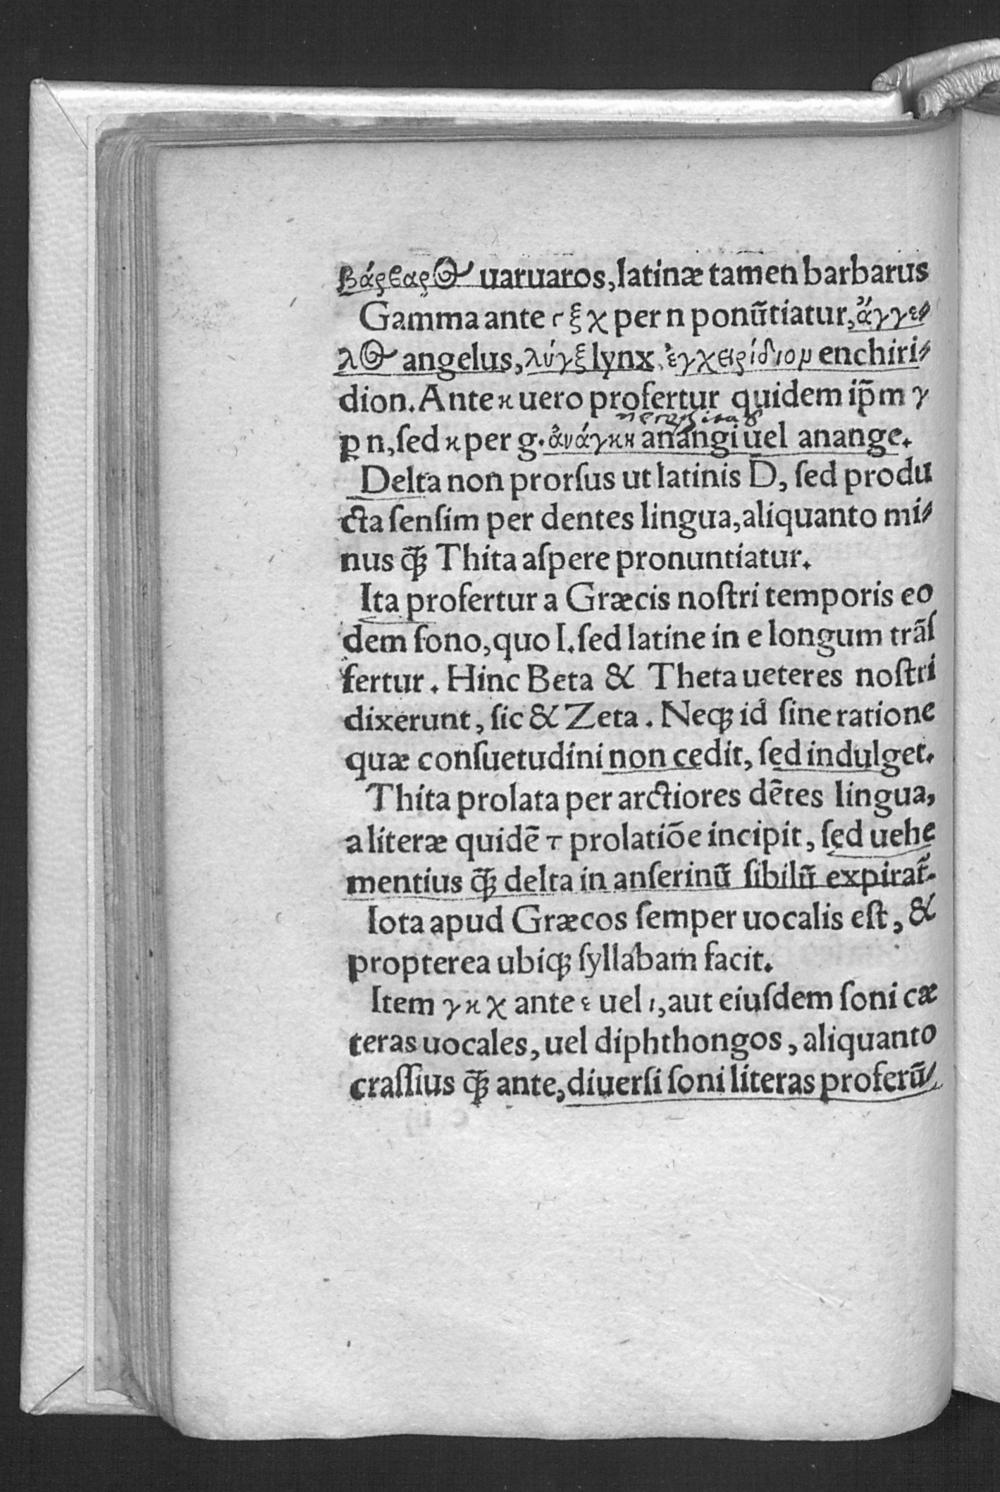 βάρβαρος uaruaros, latinæ tamen barbarus
Gamma ante γ ξ χ per n ponũtiatur, ἄγγε⸗
λος angelus, λύγξ lynx, ἐγχειρίδιομ enchiri⸗
dion. Ante κ uero profertur quidem ip̃m γ
ꝑ n, ſed κ per g. ἀνάγκη anangi uel anange.
Delta non prorſus ut latinis D, ſed produ
cta ſenſim per dentes lingua, aliquanto mi⸗
nus ꝙ̃ Thita aſpere pronuntiatur.
Ita profertur a Græcis noſtri temporis eo
dem ſono, quo I. ſed latine in e longum trãſ
fertur. Hinc Beta & Theta ueteres noſtri
dixerunt, ſic & Zeta. Neqꝫ id ſine ratione
quæ conſuetudini non cedit, ſed indulget.
Thita prolata per arctiores dẽtes lingua,
a literæ quidẽ τ prolatiõe incipit, ſed uehe
mentius ꝙ̃ delta in anſerinũ ſibilũ expirat̃.
Iota apud Græcos ſemper uocalis eſt, &
propterea ubiqꝫ ſyllabam facit.
Item γ κ χ ante ε uel ι, aut eiuſdem ſoni cæ
teras uocales, uel diphthongos, aliquanto
craſſius ꝙ̃ ante, diuerſi ſoni literas proferũ⸗